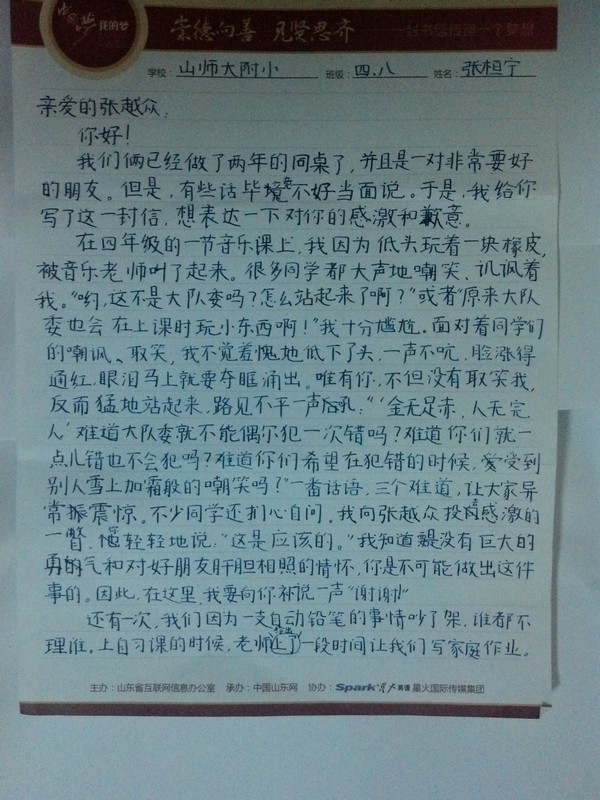 中国梦 我的梦
崇德向善 见贤思齐
一封书信传递一个梦想
学校：山师大附小 班级：四.八 姓名：张桓宁
亲爱的张越众：
你好！
我们俩已经做了两年的同桌了，并且是一对非常要好
的朋友。但是，有些话毕竟不好当面说。于是，我给你
写了这一封信，想表达一下对你的感激和歉意。
在四年级的一节音乐课上，我因为低头玩着一块橡皮，
被音乐老师叫了起来。很多同学都大声地嘲笑、讥讽着
我。“哟，这不是大队委吗？怎么站起来了啊？”或者“原来大队
委也会在上课时玩小东西啊！”我十分尴尬。面对着同学们
的嘲讽、取笑，我不觉羞愧地低下了头，一声不吭，脸涨得
通红，眼泪马上就要夺眶涌出。唯有你，不但没有取笑我，
反而猛地站起来，路见不平一声吼：“‘金无足赤，人无完
人’难道大队委就不能偶尔犯一次错吗？难道你们就一
点儿错也不会犯吗？难道你们希望在犯错的时候，受到
别人雪上加霜般的嘲笑吗？”一番话语，三个难道，让大家异
常震惊。不少同学还扪心自问。我向张越众投向感激的
一瞥，他轻轻地说：“这是应该的。”我知道没有巨大的
勇气和对好朋友肝胆相照的情怀，你是不可能做出这件
事的。因此，在这里，我要向你补说一声“谢谢！”
还有一次，我们因为一支自动铅笔的事情吵了架，谁都不
理谁。上自习课的时候，老师一段时间让我们写家庭作业。
主办：山东省互联网信息办公室 承办：中国山东网 协办：Spark 星火英语 星火国际传媒集团